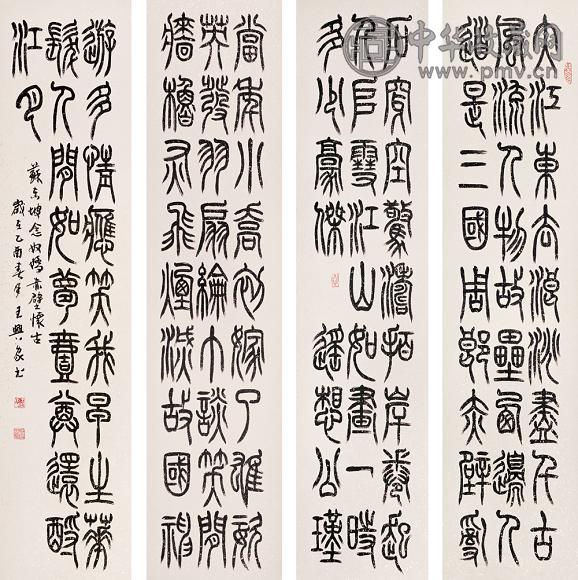 大江東去浪淘盡千古
風流人物故壘西邊人
道是三國周郎赤壁亂
石穿空驚濤拍岸卷起
千堆雪江山如畫一時
多少豪傑遙想公瑾
當年小喬初嫁了雄姿
英發羽扇綸巾談笑間
檣櫓灰飛煙滅故國神
遊多情應笑我早生華
髮人間如夢壹尊還酹
江月
蘇東坡念奴嬌赤壁懷古
歲在乙酉春王興家書
中华收藏网
www.pmv.cn